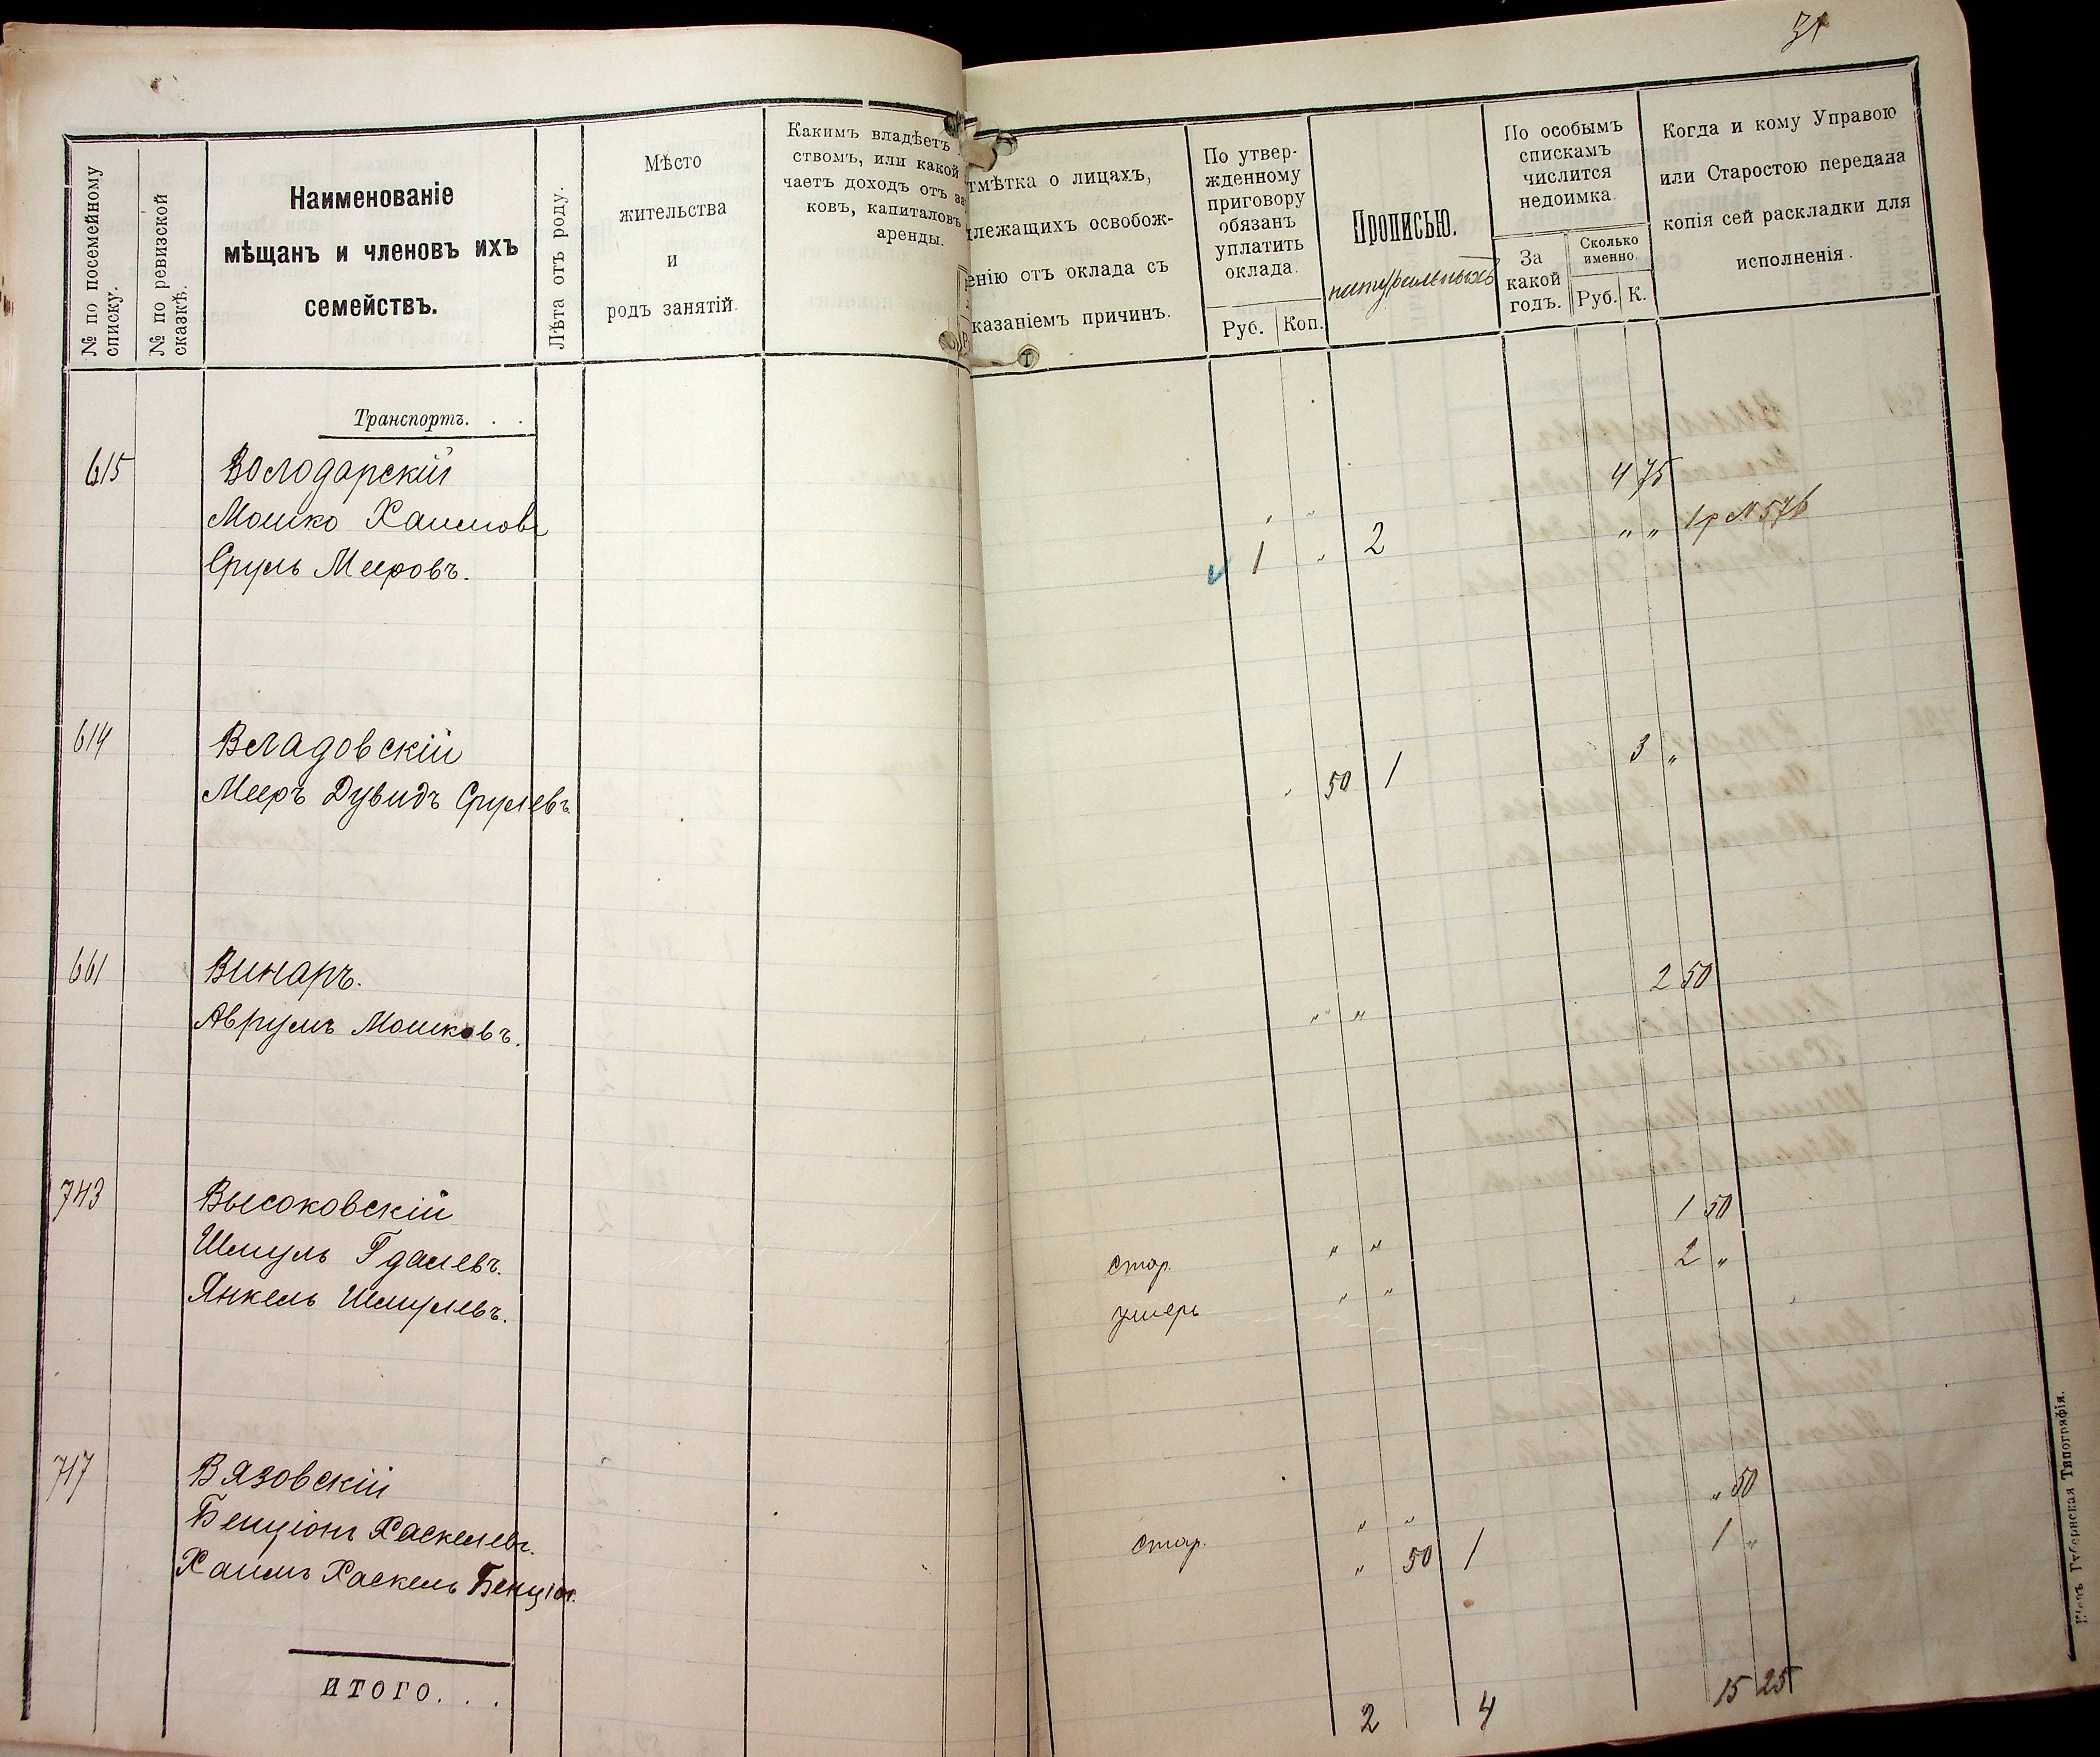 31
№ по посемейному списку.
№ по ревизской сказкѣ.
Наименованіе
мѣщанъ и членовъ ихъ
семействъ.
Лѣта отъ роду.
Мѣсто
жительства
и
родъ занятій.
Какимъ владѣетъ
ствомъ, или какой
чаетъ доходъ отъ за
ковъ, капиталовъ
аренды.
тмѣтка о лицахъ,
длежащихъ освобож-
енію отъ оклада съ
казаніемъ причинъ.
По утвер-
жденному
приговору
обязанъ
уплатить
оклада.
Руб. Коп.
Прописью.
натуральныхъ
По особымъ
спискамъ
числится
недоимка.
За
какой
годъ.
Сколько
именно.
Руб. К.
Когда и кому Управою
или Старостою передана
копія сей раскладки для
исполненія.
Транспортъ. . .
615 Володарскій
Мошко Хаимовъ " " 4 75
Сруль Мееровъ. 1 " 2 " " 1 р № 576
614 Владовскій
Мееръ Дувидъ Срулевъ " 50 1 3 "
661 Винаръ.
Аврумъ Мошковъ. " " 2 50
743 Высоковскій
Шмуль Гдалевъ. стар. " " 1 50
Янкель Шмулевъ. умеръ " " 2 "
717 Вязовскій
Бенціонъ Хаскелевъ. стар. " " " 50
Хаимъ Хаскель Бенціон. " 50 1 1 "
ИТОГО. . . 2 4 15 25
Кіевъ Губернская Типографія.